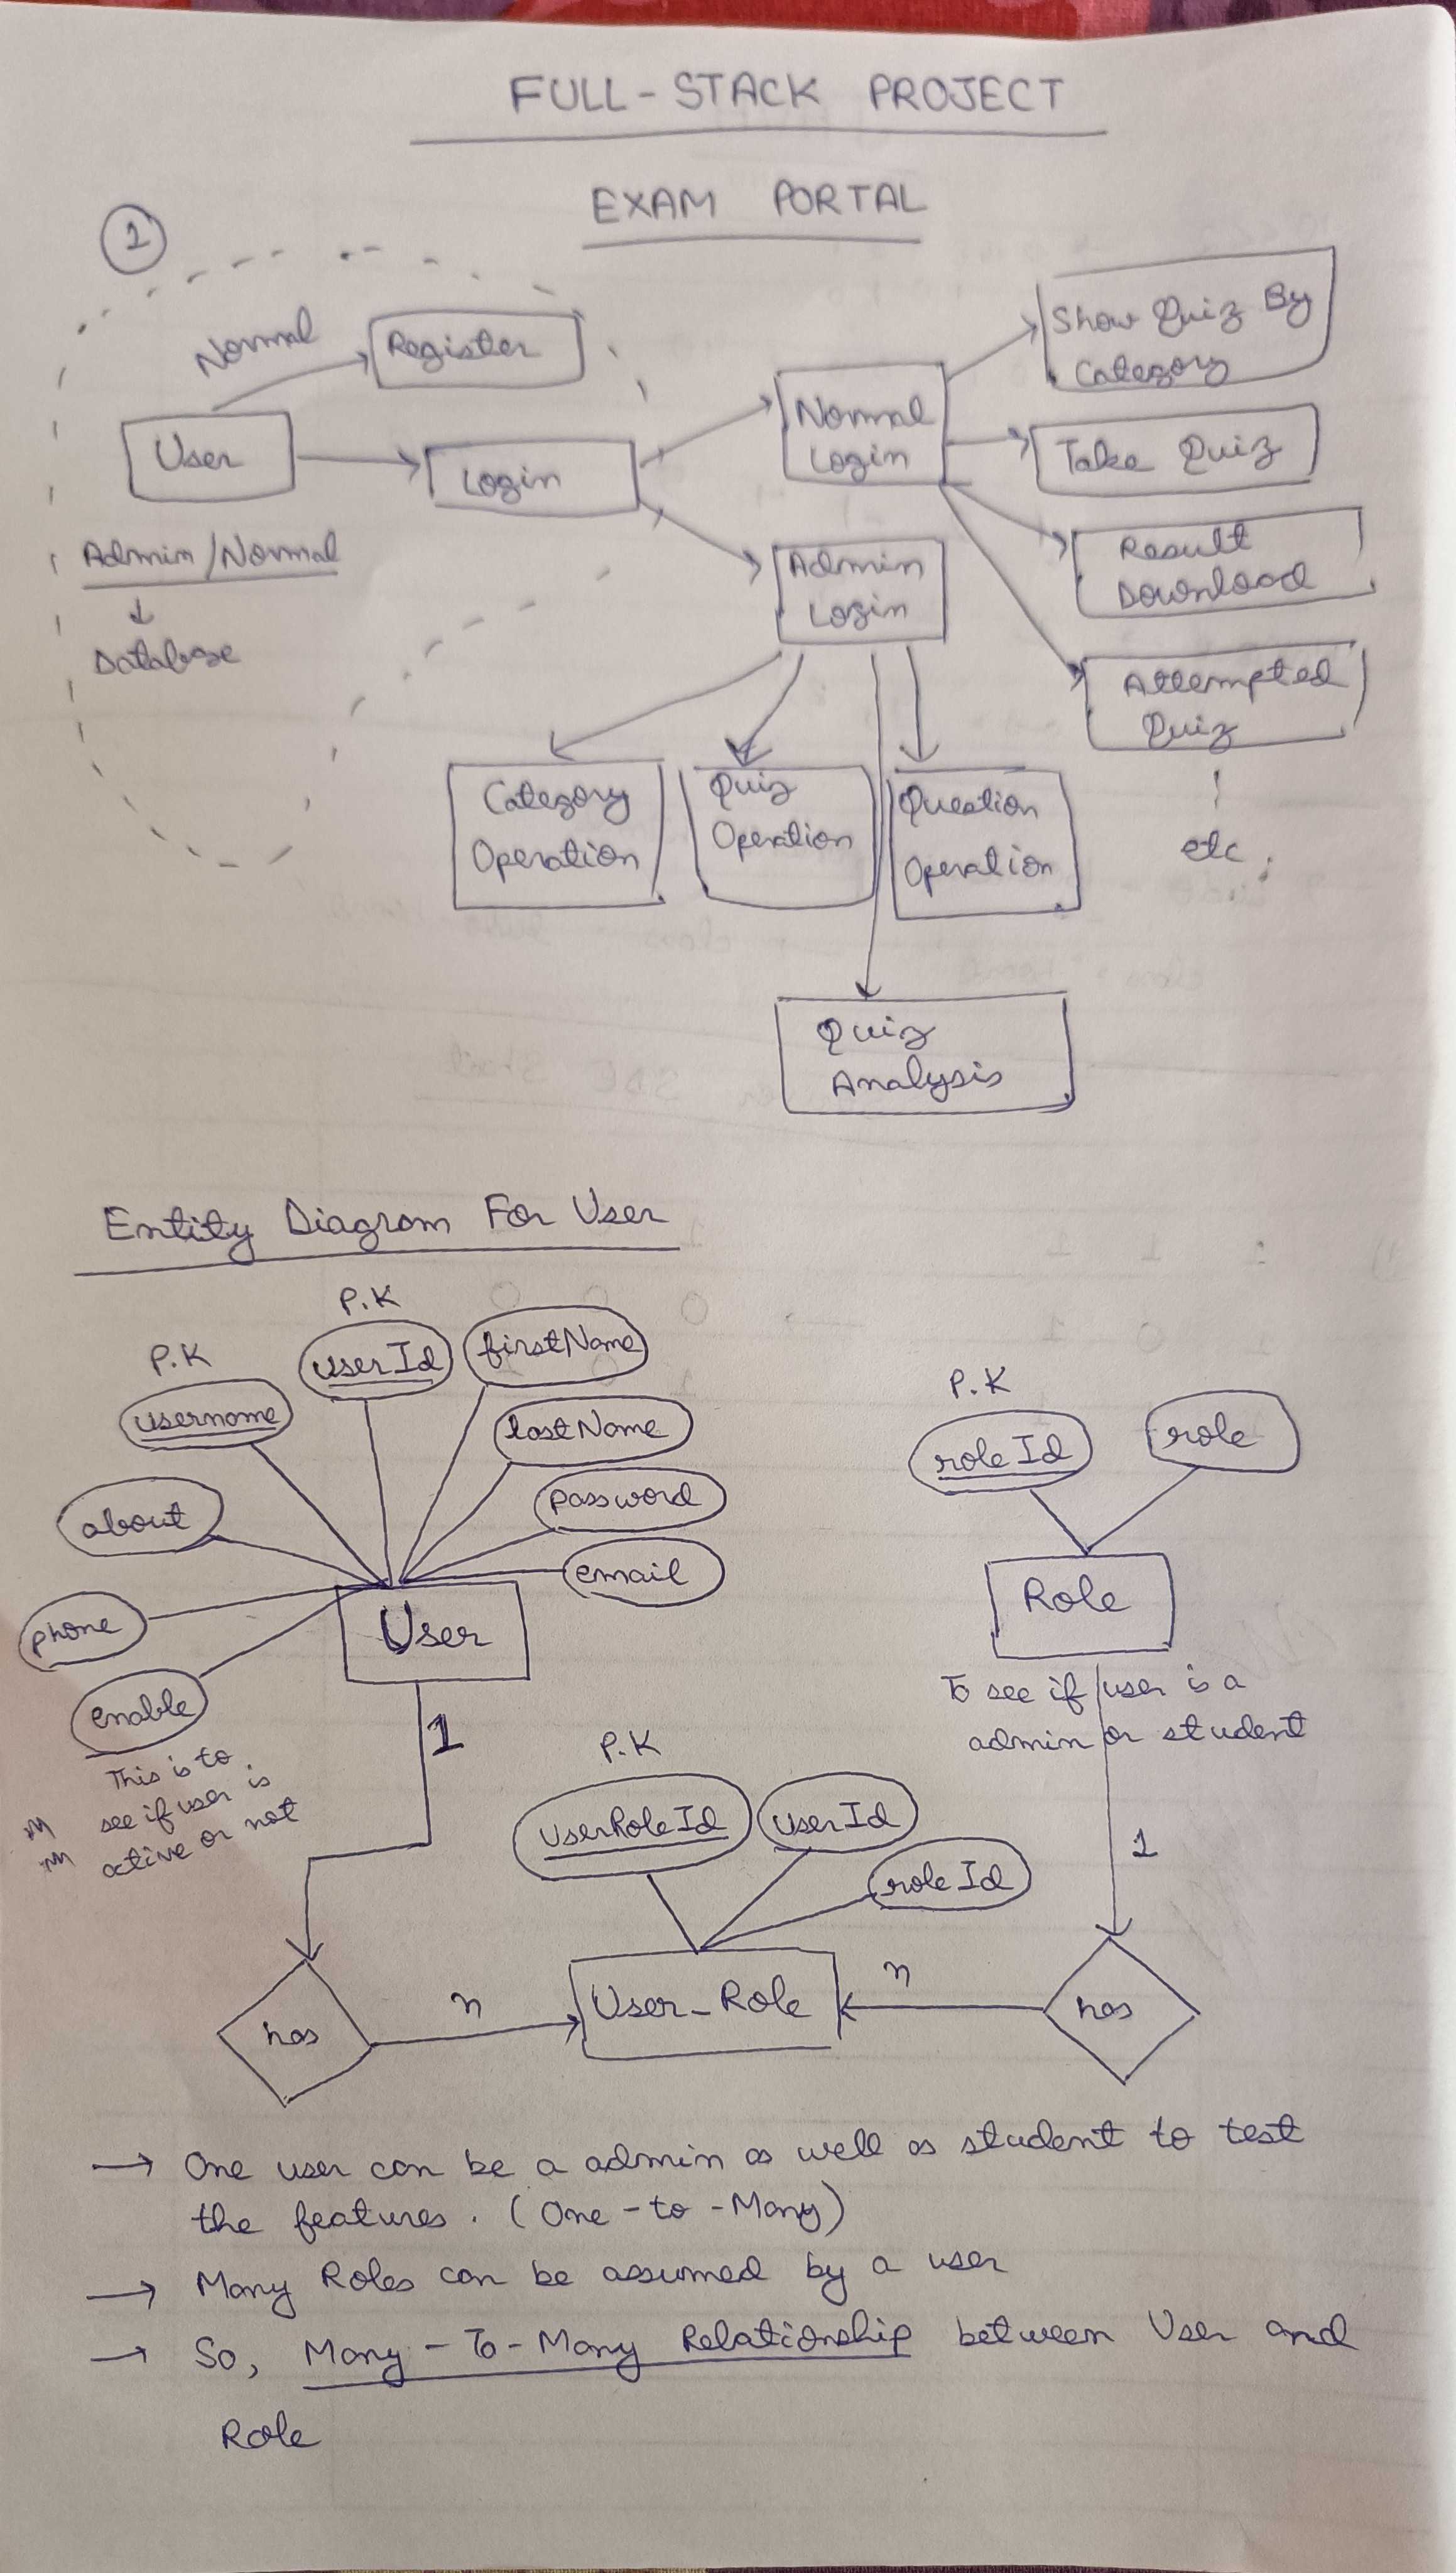 FULL-STACK PROJECT
EXAM PORTAL
1
Normal
Register
User
Login
Admin/Normal
Database
Normal
Login
Admin
Login
Show Quiz By
Category
Take Quiz
Result
Download
Attempted
Quiz
etc.
Category
Operation
Quiz
Operation
Question
Operation
Quiz
Analysis
Entity Diagram For User
P.K
username
P.K
userId
firstName
lastName
password
email
about
phone
enable
This is to
see if user is
active or not
User
1
P.K
roleId
role
Role
To see if user is a
admin or student
1
P.K
UserRoleId
userId
roleId
has
n
User_Role
n
has
→ One user can be a admin as well as student to test
the features. (One-to-Many)
→ Many Roles can be assumed by a user
→ So, Many-To-Many Relationship between User and
Role